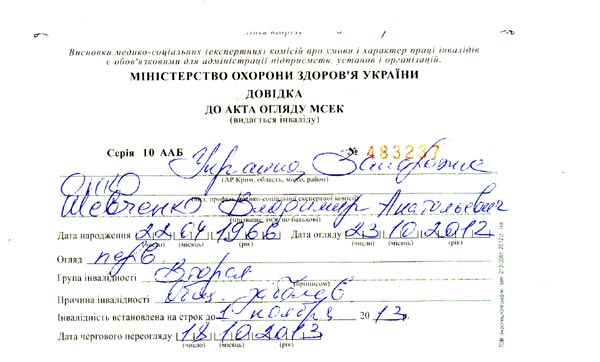 Висновки медико-соціальних (експертних) комісій про умови і характер праці інвалідів
є обов'язковими для адміністрації підприємств, установ і організацій.
МІНІСТЕРСТВО ОХОРОНИ ЗДОРОВ'Я УКРАЇНИ
ДОВІДКА
ДО АКТА ОГЛЯДУ МСЕК
(видається інваліду)
Серія 10 ААБ № 483237
Украина, Запорожье
(АР Крим, область, місто, район)
ОНКО
профіль медико-соціальної експертної комісії)
Шевченко Владимир Анатольевич
(прізвище, ім'я, по батькові)
Дата народження 22 04 1966 Дата огляду 23 10 2012
(число) (місяць) (рік) (число) (місяць) (рік)
Огляд перв.
Група інвалідності Вторая
(прописом)
Причина інвалідності Общ. заболев
Інвалідність встановлена на строк до 1 ноября 2013.
Дата чергового переогляду 18 10 2013
(число) (місяць) (рік)